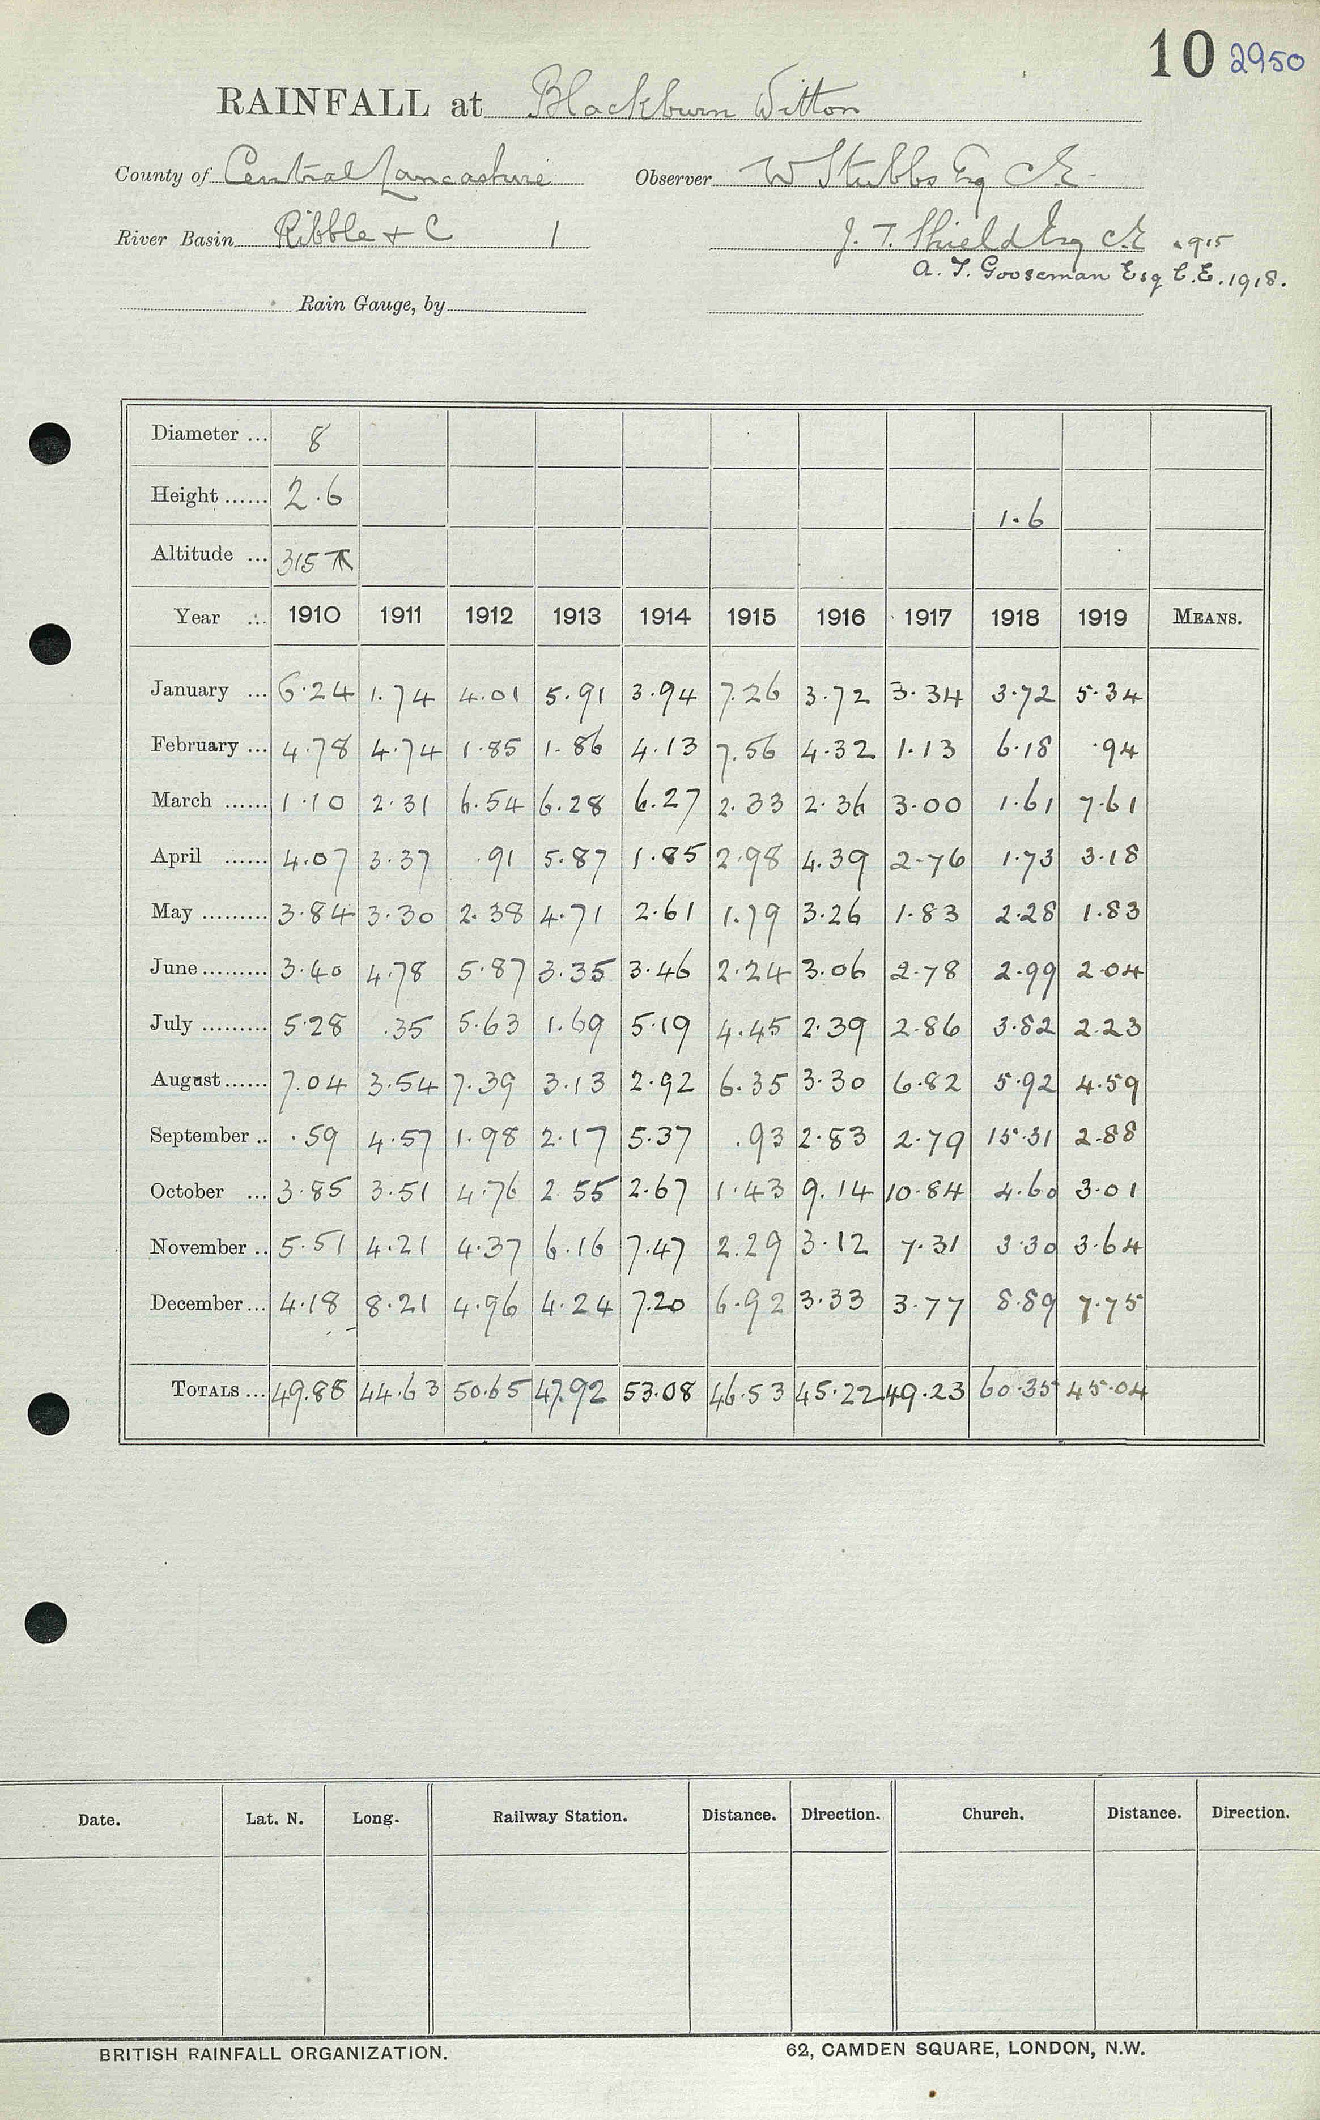 10 2950
RAINFALL at Blackburn Witton
County of Central Lancashire Observer W Stubbs Esq C.E.
River Basin Ribble & C 1 J. T. Shield Esq C.E 1915
A. T. Gooseman Esq C.E. 1918.
Rain Gauge, by
Diameter ... 8
Height ...... 2.6 1.6
Altitude ... 315
Year ... 1910 1911 1912 1913 1914 1915 1916 1917 1918 1919 MEANS.
January ... 6.24 1.74 4.01 5.91 3.94 7.26 3.72 3.34 3.72 5.34
February ... 4.78 4.74 1.85 1.86 4.13 7.56 4.32 1.13 6.18 .94
March ...... 1.10 2.31 6.54 6.28 6.27 2.33 2.36 3.00 1.61 7.61
April ...... 4.07 3.37 .91 5.87 1.85 2.98 4.39 2.76 1.73 3.18
May ......... 3.84 3.30 2.38 4.71 2.61 1.79 3.26 1.83 2.28 1.83
June ......... 3.40 4.78 5.87 3.35 3.46 2.24 3.06 2.78 2.99 2.04
July ......... 5.28 .35 5.63 1.69 5.19 4.45 2.39 2.86 3.82 2.23
August ...... 7.04 3.54 7.39 3.13 2.92 6.35 3.30 6.82 5.92 4.59
September .. .59 4.57 1.98 2.17 5.37 .93 2.83 2.79 15.31 2.88
October ... 3.85 3.51 4.76 2.55 2.67 1.43 9.14 10.84 4.60 3.01
November .. 5.51 4.21 4.37 6.16 7.47 2.29 3.12 7.31 3.30 3.64
December ... 4.18 8.21 4.96 4.24 7.20 6.92 3.33 3.77 8.89 7.75
TOTALS ... 49.88 44.63 50.65 47.92 53.08 46.53 45.22 49.23 60.35 45.04
Date. Lat. N. Long. Railway Station. Distance. Direction. Church. Distance. Direction.
BRITISH RAINFALL ORGANIZATION. 62, CAMDEN SQUARE, LONDON, N.W.